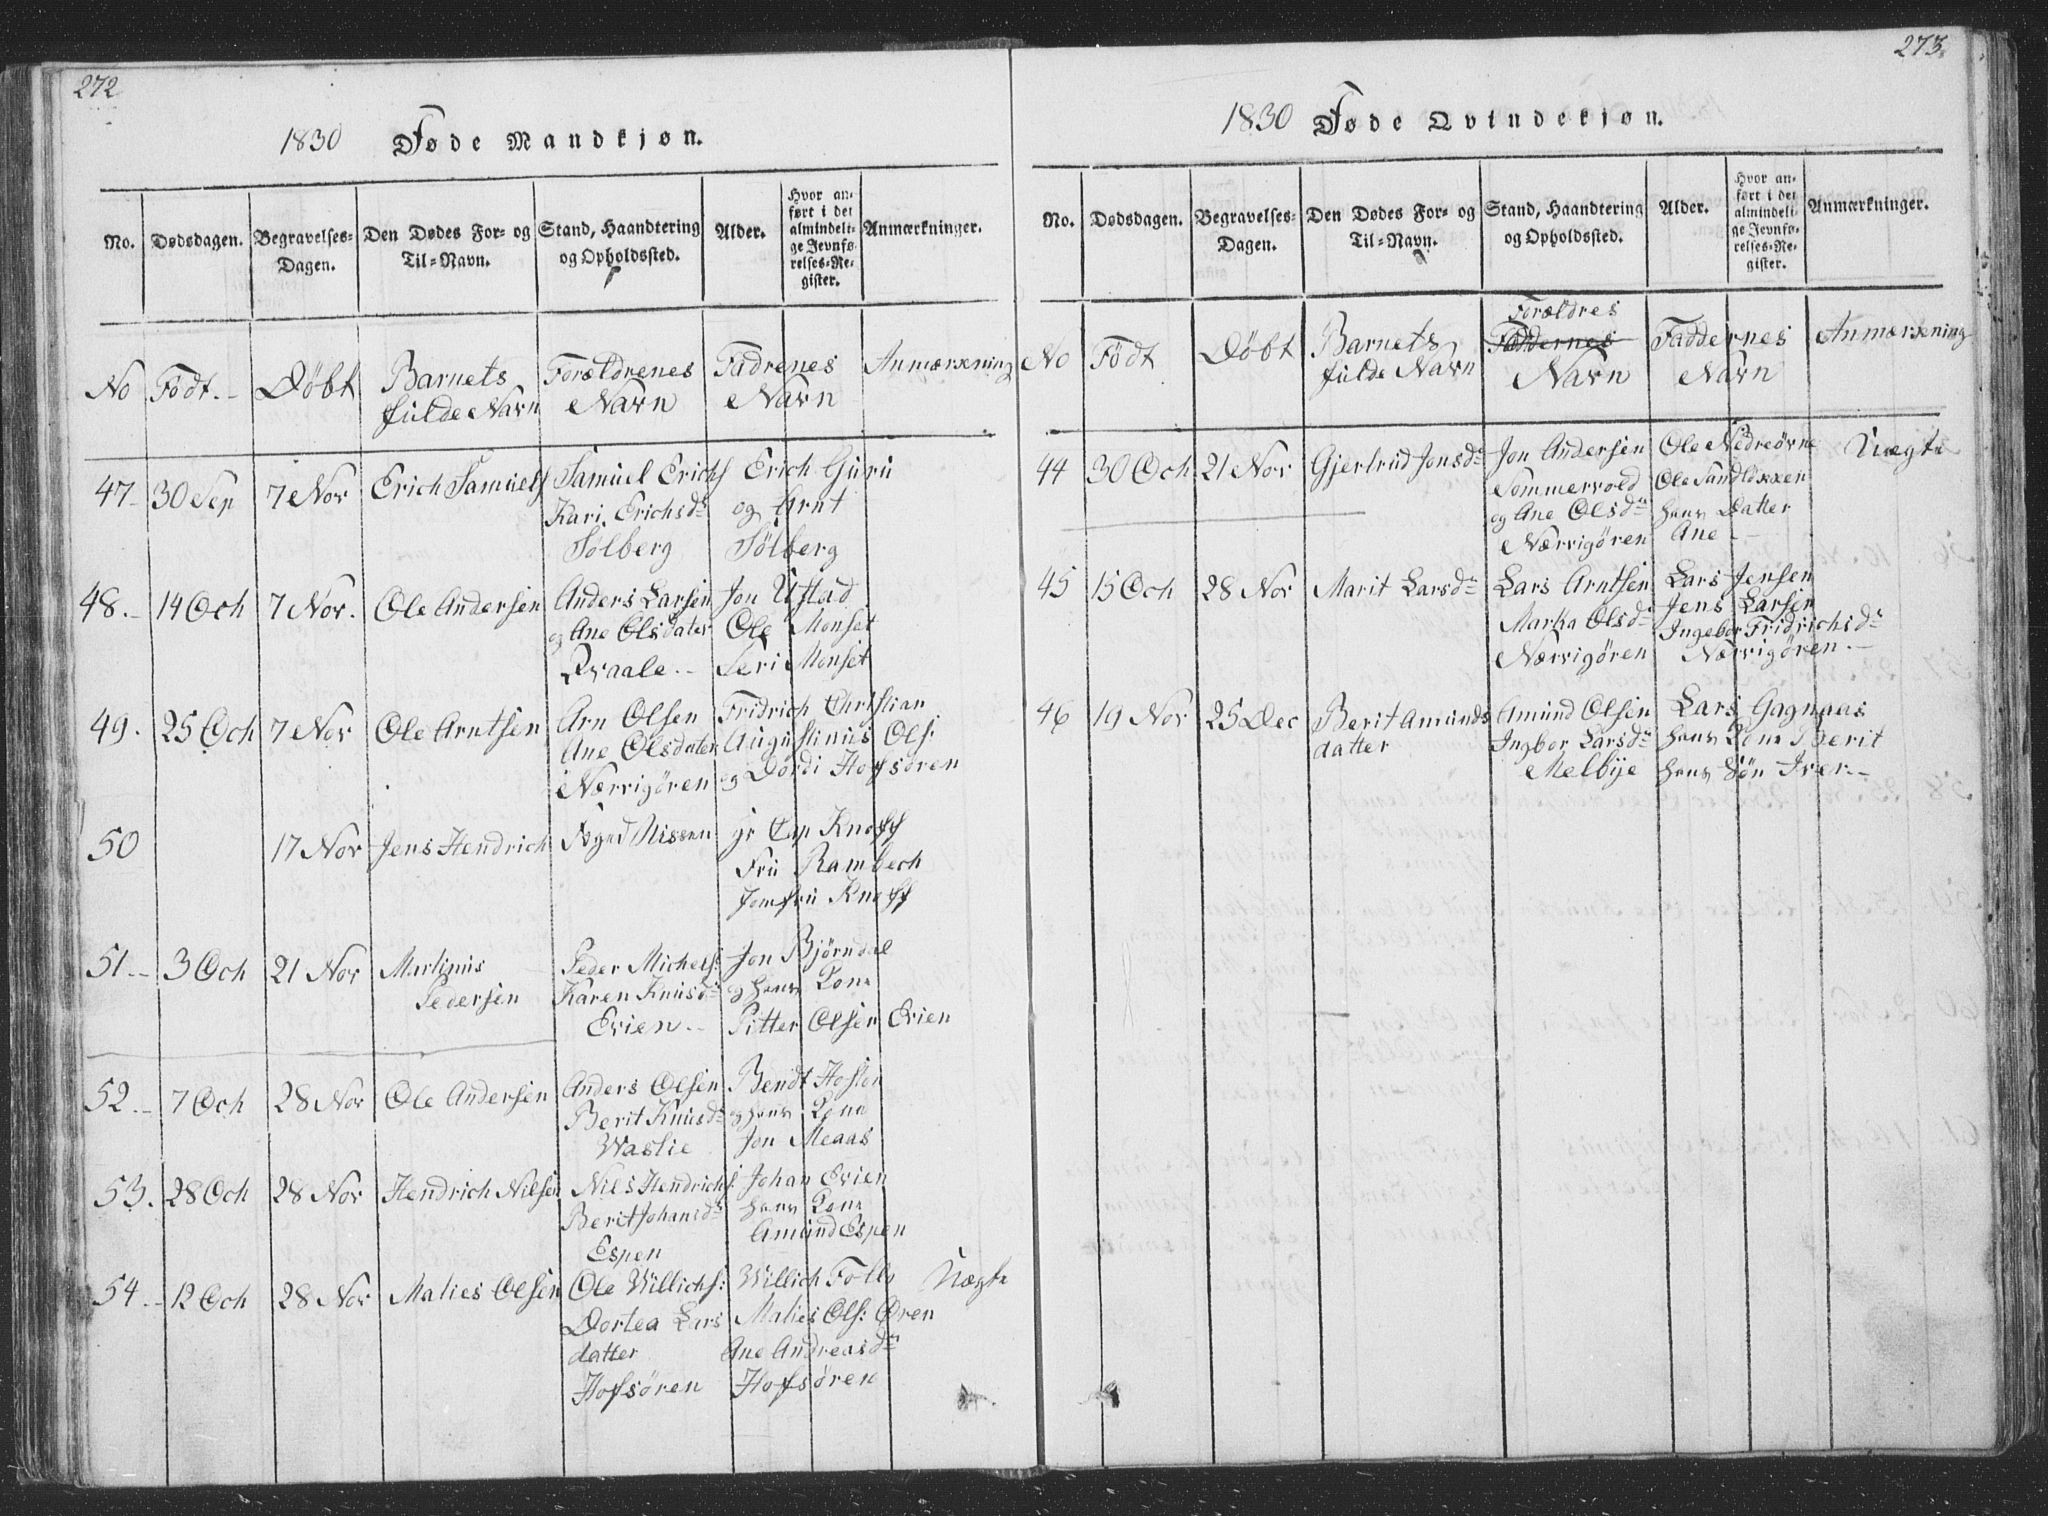 272
1830 Føde Mandkjøn.
No.
Dødsdagen.
Begravelses-
Dagen.
Den Dødes For- og
Til-Navn.
Stand, Haandtering
og Opholdssted.
Alder.
Hvor an-
ført i det
almindeli-
ge Jevnfø-
relses-Re-
gister.
Anmærkninger.
No
Födt.
Döbt
Barnets
fulde Navn
Forældrenes
Navn
Fadrenes
Navn
Anmærxning
47 30 Sep 7 Nov Erich Samuels
Samuel Erichs
Kari Erichsdr
Sölberg
Erich Guru
og Arnt
Sölberg
48. 14 Och 7 Nov. Ole Andersen
Anders Larsen
og Ane Olsdater
Qvaale.
Jon Ustad
Ole Monset
Seri Monset
49. 25 Och 7 Nov Ole Arntsen
Arn Olsen
Ane Olsdater
Nærvigören
Fridrich Christian
Augustinus Ols:
og Dordi Hofsören
50 17 Nov Jens Hendrich
Nissen
Cap Knoff
Fru Rambech
Jomfru Knoff
51. 3 Och 21 Nov Martinus
Pedersen
Peder Michels:
Karen Knusdr
Evien.
Jon Björndal
og hans Kone
Pitter Olsen Evien
52. 7 Och 28 Nov Ole Andersen
Anders Olsen
Berit Knusdr
Waslie
Bendt Hoston
og hans Kone
Jon Meaas
53. 28 Och 28 Nov Hendrich Nilsen
Nils Hendrichs.
Berit Johansdr
Espen
Johan Evien
hans Kone
Amund Espen
54. 12 Och 28 Nov Malies Olsen
Ole Willichs:
Dortea Lars
datter
Hofsören
Willich Foll
Malies Ols: Øren
Ane Andreasdr
Hofsören
Uægte
273.
1830 Føde Qvindekjøn.
No.
Dødsdagen.
Begravelses-
Dagen.
Den Dødes For- og
Til-Navn.
Stand, Haandtering
og Opholdssted.
Alder.
Hvor an-
ført i det
almindeli-
ge Jevnfø-
relses-Re-
gister.
Anmærkninger.
No
Födt
Döbt
Barnets
fulde Navn
Forældres
Faddernes
Navn
Faddernes
Navn
Anmærxning
44 30 Och 21 Nov Gjertrud Jonsdr
Jon Andersen
Sommervold
og Ane Olsdr
Nærvigören
Ole Nedreövne
Ole Sandløxxen
hans Datter
Ane
Uægte
45 15 Och 28 Nov Marit Larsdr
Lars Arntsen
Marta Olsdr
Nærvigören
Lars Jensen
Jens Larsen
Ingebor Fridrichsdr
Nærvigören.
46 19 Nov 25 Dec Berit Amunds
datter
Amund Olsen
Ingbor Larsdr
Melbÿe
Lars Gagnaas
hans Kone Berit
hans Sön Iver